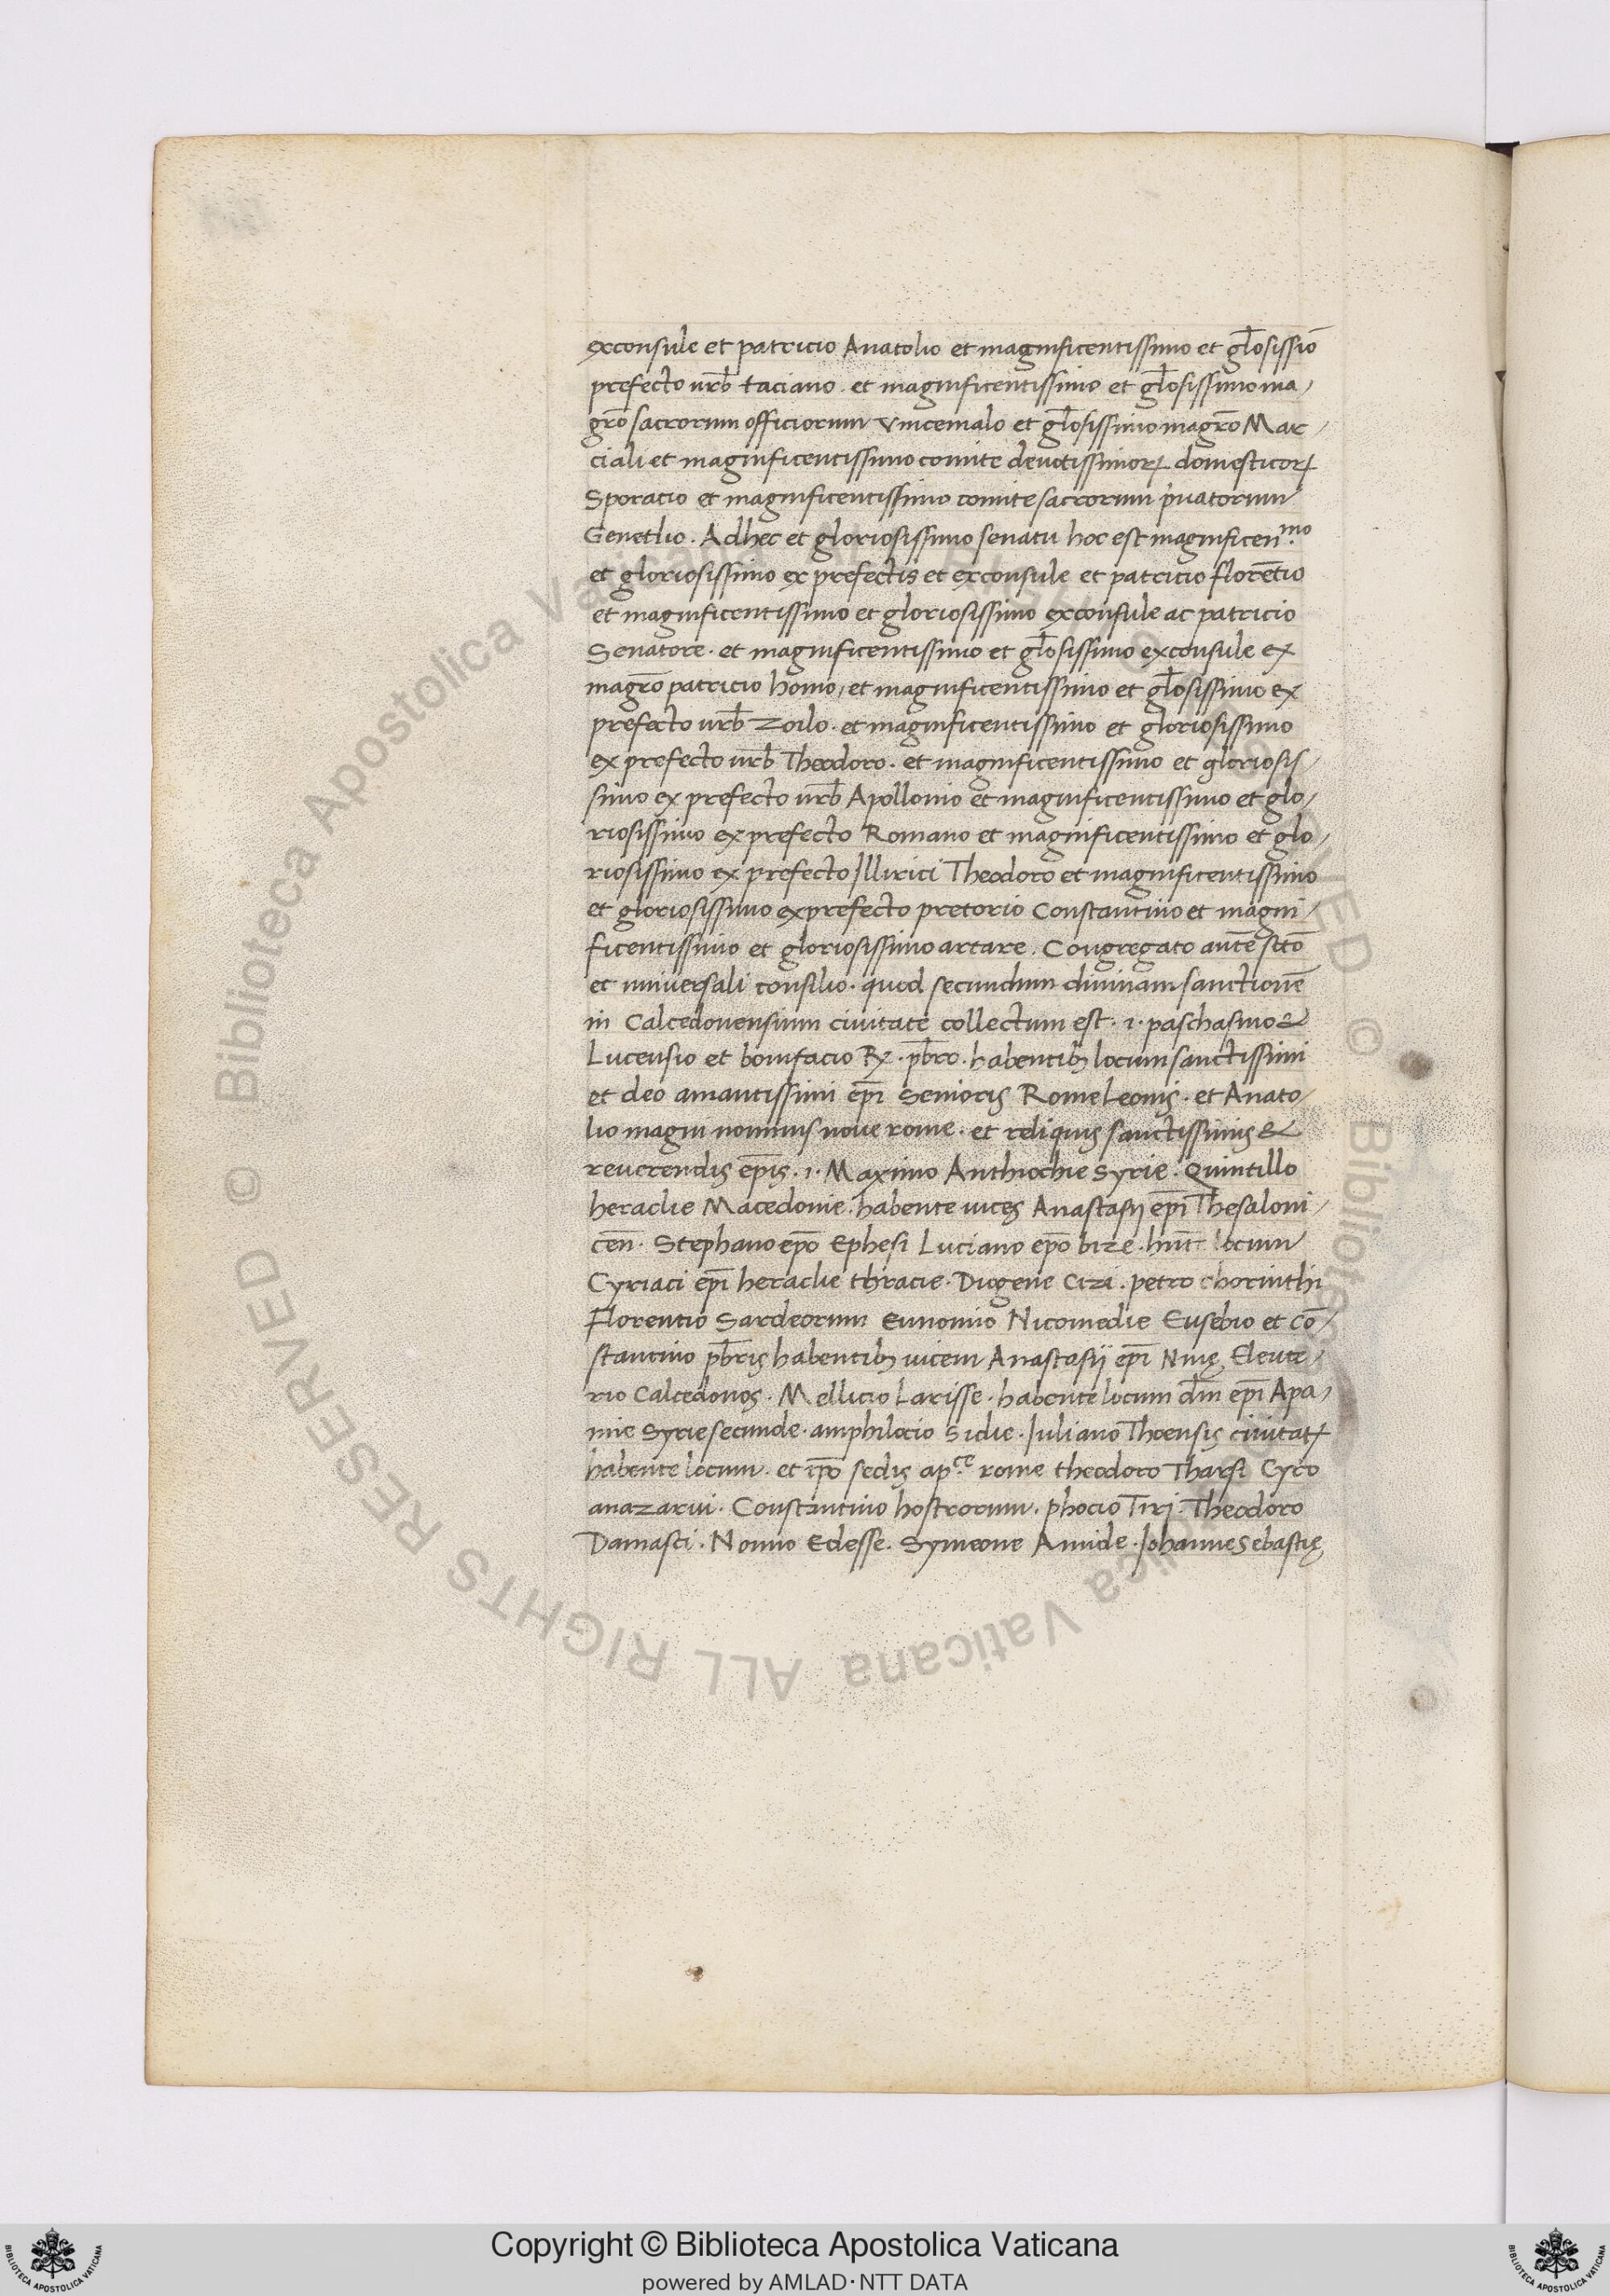 exconsule et patricio Anatolio et magnificentissimo et gl̄osissiō
prefecto urb̄ taciano. et magnificentissimo et gl̄osissimo ma/
grō sacrorum officiorum Vincemalo et gl̄osissimo magrō Mar/
ciali et magnificentissimo comite deuotissimoꝝ domesticoꝝ
Sporacio et magnificentissimo comite sacrorum p̍uatorum
Genetlio. Adhec et gloriosissimo senatu hoc est magnificen.mo
et gloriosissimo ex prefectis et exconsule et patricio florētio
et magnificentissimo et gloriosissimo exconsule ac patricio
Senatore. et magnificentissimo et gl̄osissimo exconsule ex
magrō patricio homo, et magnificentissimo et gl̄osissimo ex
prefecto urb̄ Zoilo. et magnificentissimo et gloriosissimo
ex prefecto urb̄ Theodoro. et magnificentissimo et gloriosis/
simo ex prefecto urb̄ Apollonio et magnificentissimo et glo/
riosissimo ex prefecto Romano et magnificentissimo et glo/
riosissimo ex prefecto Jllirici Theodoro et magnificentissimo
et gloriosissimo exprefecto pretorio Constantino et magni/
ficentissimo et gloriosissimo artare. Congregato aut̄e sc̄to
et uniuersali consilio. quod secundum diuinam sanctionē
in Calcedonensium ciuitate collectum est. i. paschasino &
Lucensio et bonifacio R͛. pb̄ro. habentibꝫ locum sanctissimi
et deo amantissimi ep̄i Senioris Rome Leonis. et Anato/
lio magni nominis noue rome. et reliquis sanctissimis &
reuerendis ep̄is. i. Maximo Anthiochie Syrie. Quintillo
heraclie Macedonie. habente uices Anastasij ep̄i Thesaloni/
cēn. Stephano ep̄o Ephesi Luciano ep̄o bize. hn̄t locum
Cyriaci ep̄i heraclie thracie. Diogene Cizi. petro chorinthi
Florentio Sardeorum Eunomio Nicomedie Eusebio et cō/
stantino pb̄ris habentibꝫ uicem Anastasij ep̄i Nicę Eleute/
rio Calcedonos. Mellicio Larisse. habente locum dn̄i ep̄i Apa/
mie Syrie secunde. amphilocio Sidie. Juliano Thoensis ciuitatꝭ
habente locum. et ip̄o sedis ap.ce rome theodoro Tharsi Cyro
anazarui. Constantino hostrorum. phocio Tirj. Theodoro
Damasci. Nonno Edesse. Symeone Amide. Johanne Sebastię
Copyright © Biblioteca Apostolica Vaticana
powered by AMLAD·NTT DATA
© Biblioteca Apostolica Vaticana ALL RIGHTS RESERVED